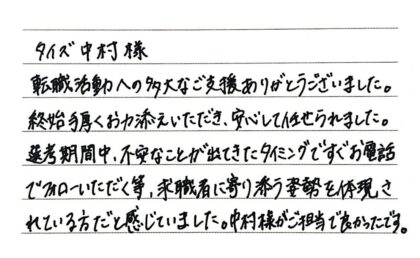 タイズ中村様
転職活動への多大なご支援ありがとうございました。
終始手厚くお力添えいただき、安心して任せられました。
選考期間中、不安なことが出てきたタイミングですぐお電話
でフォローいただく等、求職者に寄り添う姿勢を体現さ
れている方だと感じていました。中村様がご担当で良かったです。